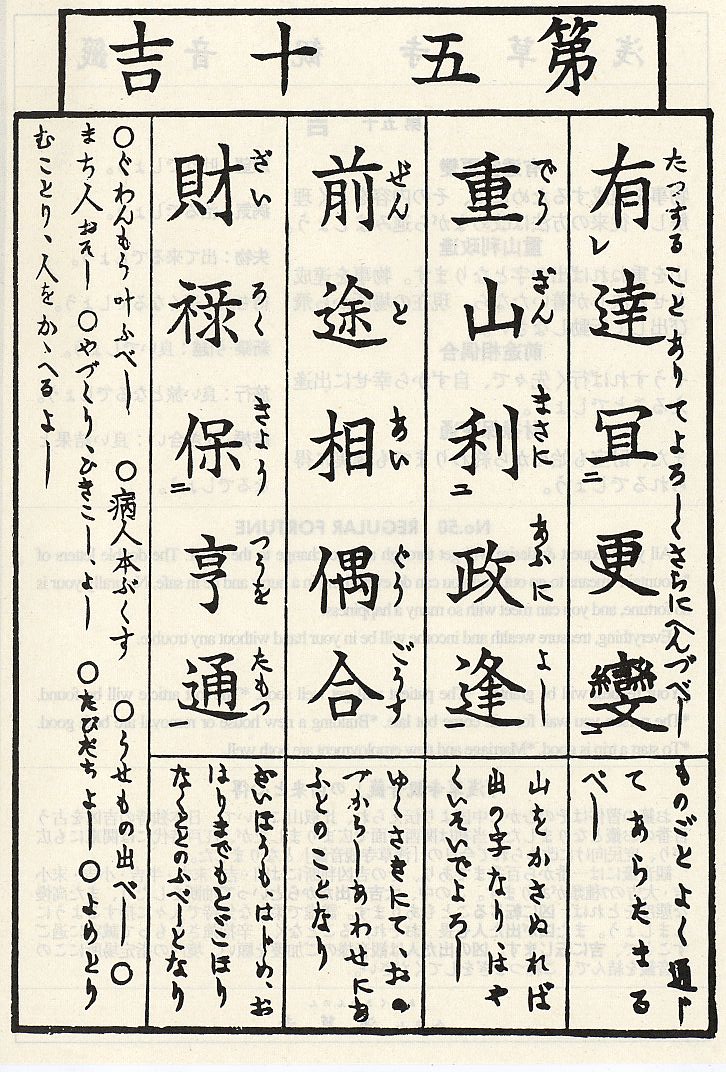 第五十吉
たつすることありてよろしくさらにへんづべし
有達宜更變
ものごとよく通じ
てあらたまる
べし
でう ざん まさに あふに よし
重山利政逢
山をかさぬれば
出の字なり、はや
くいそいでよろし
ぜん と あい どう ごうす
前途相偶合
ゆくさきにて、おの
づからしあわせにあ
ふとのことなり
ざい ろく きよう つうを たもつ
財禄保亨通
ざいほうも、はじめ、お
はりまでもとどこほり
なくとのふべしとなり
〇ぐわんもう叶ふべし 〇病人本ぶくす 〇うせもの出べし 〇
まち人おそし 〇やづくり、ひきこし、よし 〇たびだちよし 〇よめとり
むことり、人をかゝへるよし